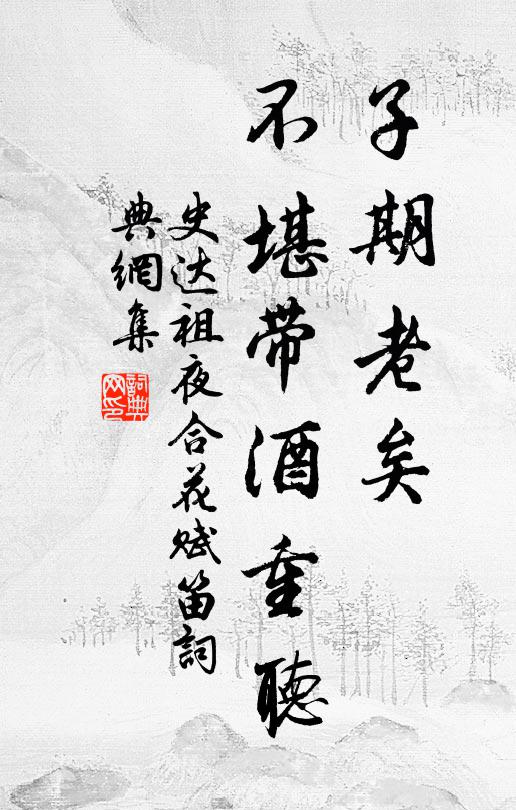 子期老矣
不堪带酒重聽
史达祖夜合花赋笛詞
典網集
詞典
网印